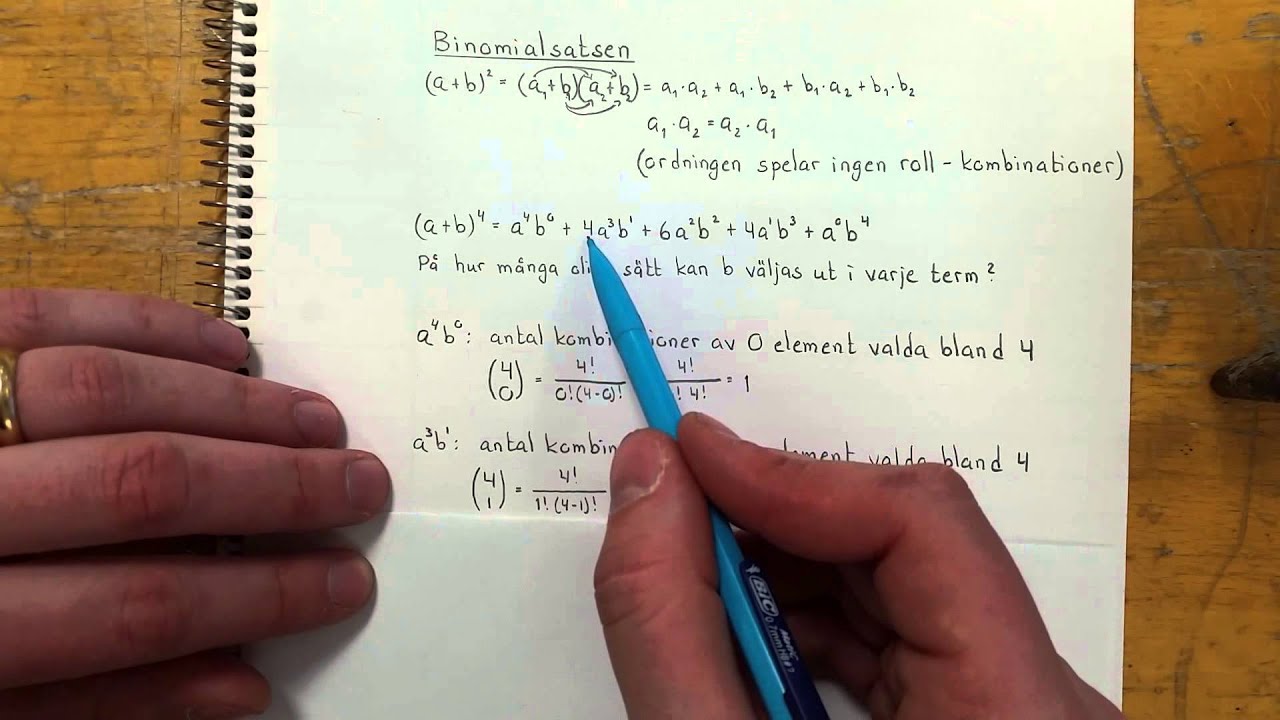 Binomialsatsen
(a+b)² = (a₁+b₁)(a₂+b₂) = a₁·a₂ + a₁·b₂ + b₁·a₂ + b₁·b₂
a₁·a₂ = a₂·a₁
(ordningen spelar ingen roll – kombinationer)
(a+b)⁴ = a⁴b⁰ + 4a³b¹ + 6a²b² + 4a¹b³ + a⁰b⁴
På hur många sätt kan b väljas ut i varje term?
a⁴b⁰: antal av 0 element valda bland 4
(4 0) = 4!/0!(4-0)! 4!/! 4! = 1
a³b¹: antal valda bland 4
(4 1) = 4!/1!·(4-1)!
BIC
0.7mm HB #2